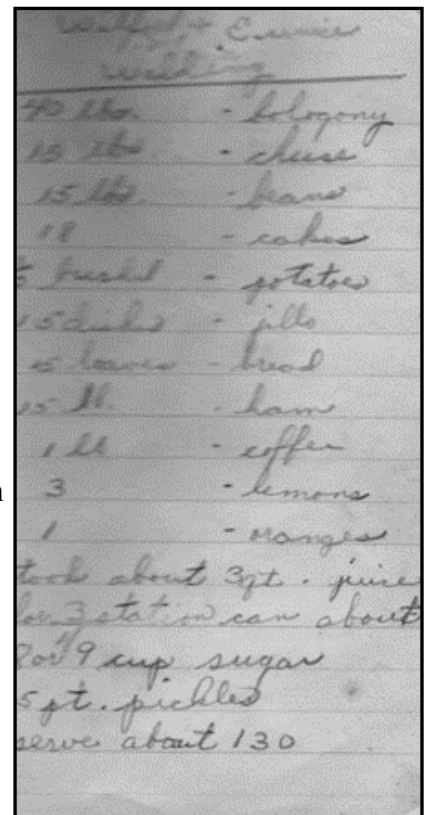 Wilfred & Eunice
Wedding
40 lbs. - bologony
15 lbs. - cheese
15 lbs. - beans
18 - cakes
bushel - potatoes
15 dishes - jello
loaves - bread
15 lb. - ham
1 lb - coffee
3 - lemons
1 - oranges
took about 3 qt. juice
for 3 station can about
8 or 9 cup sugar
5 pt. pickles
serve about 130